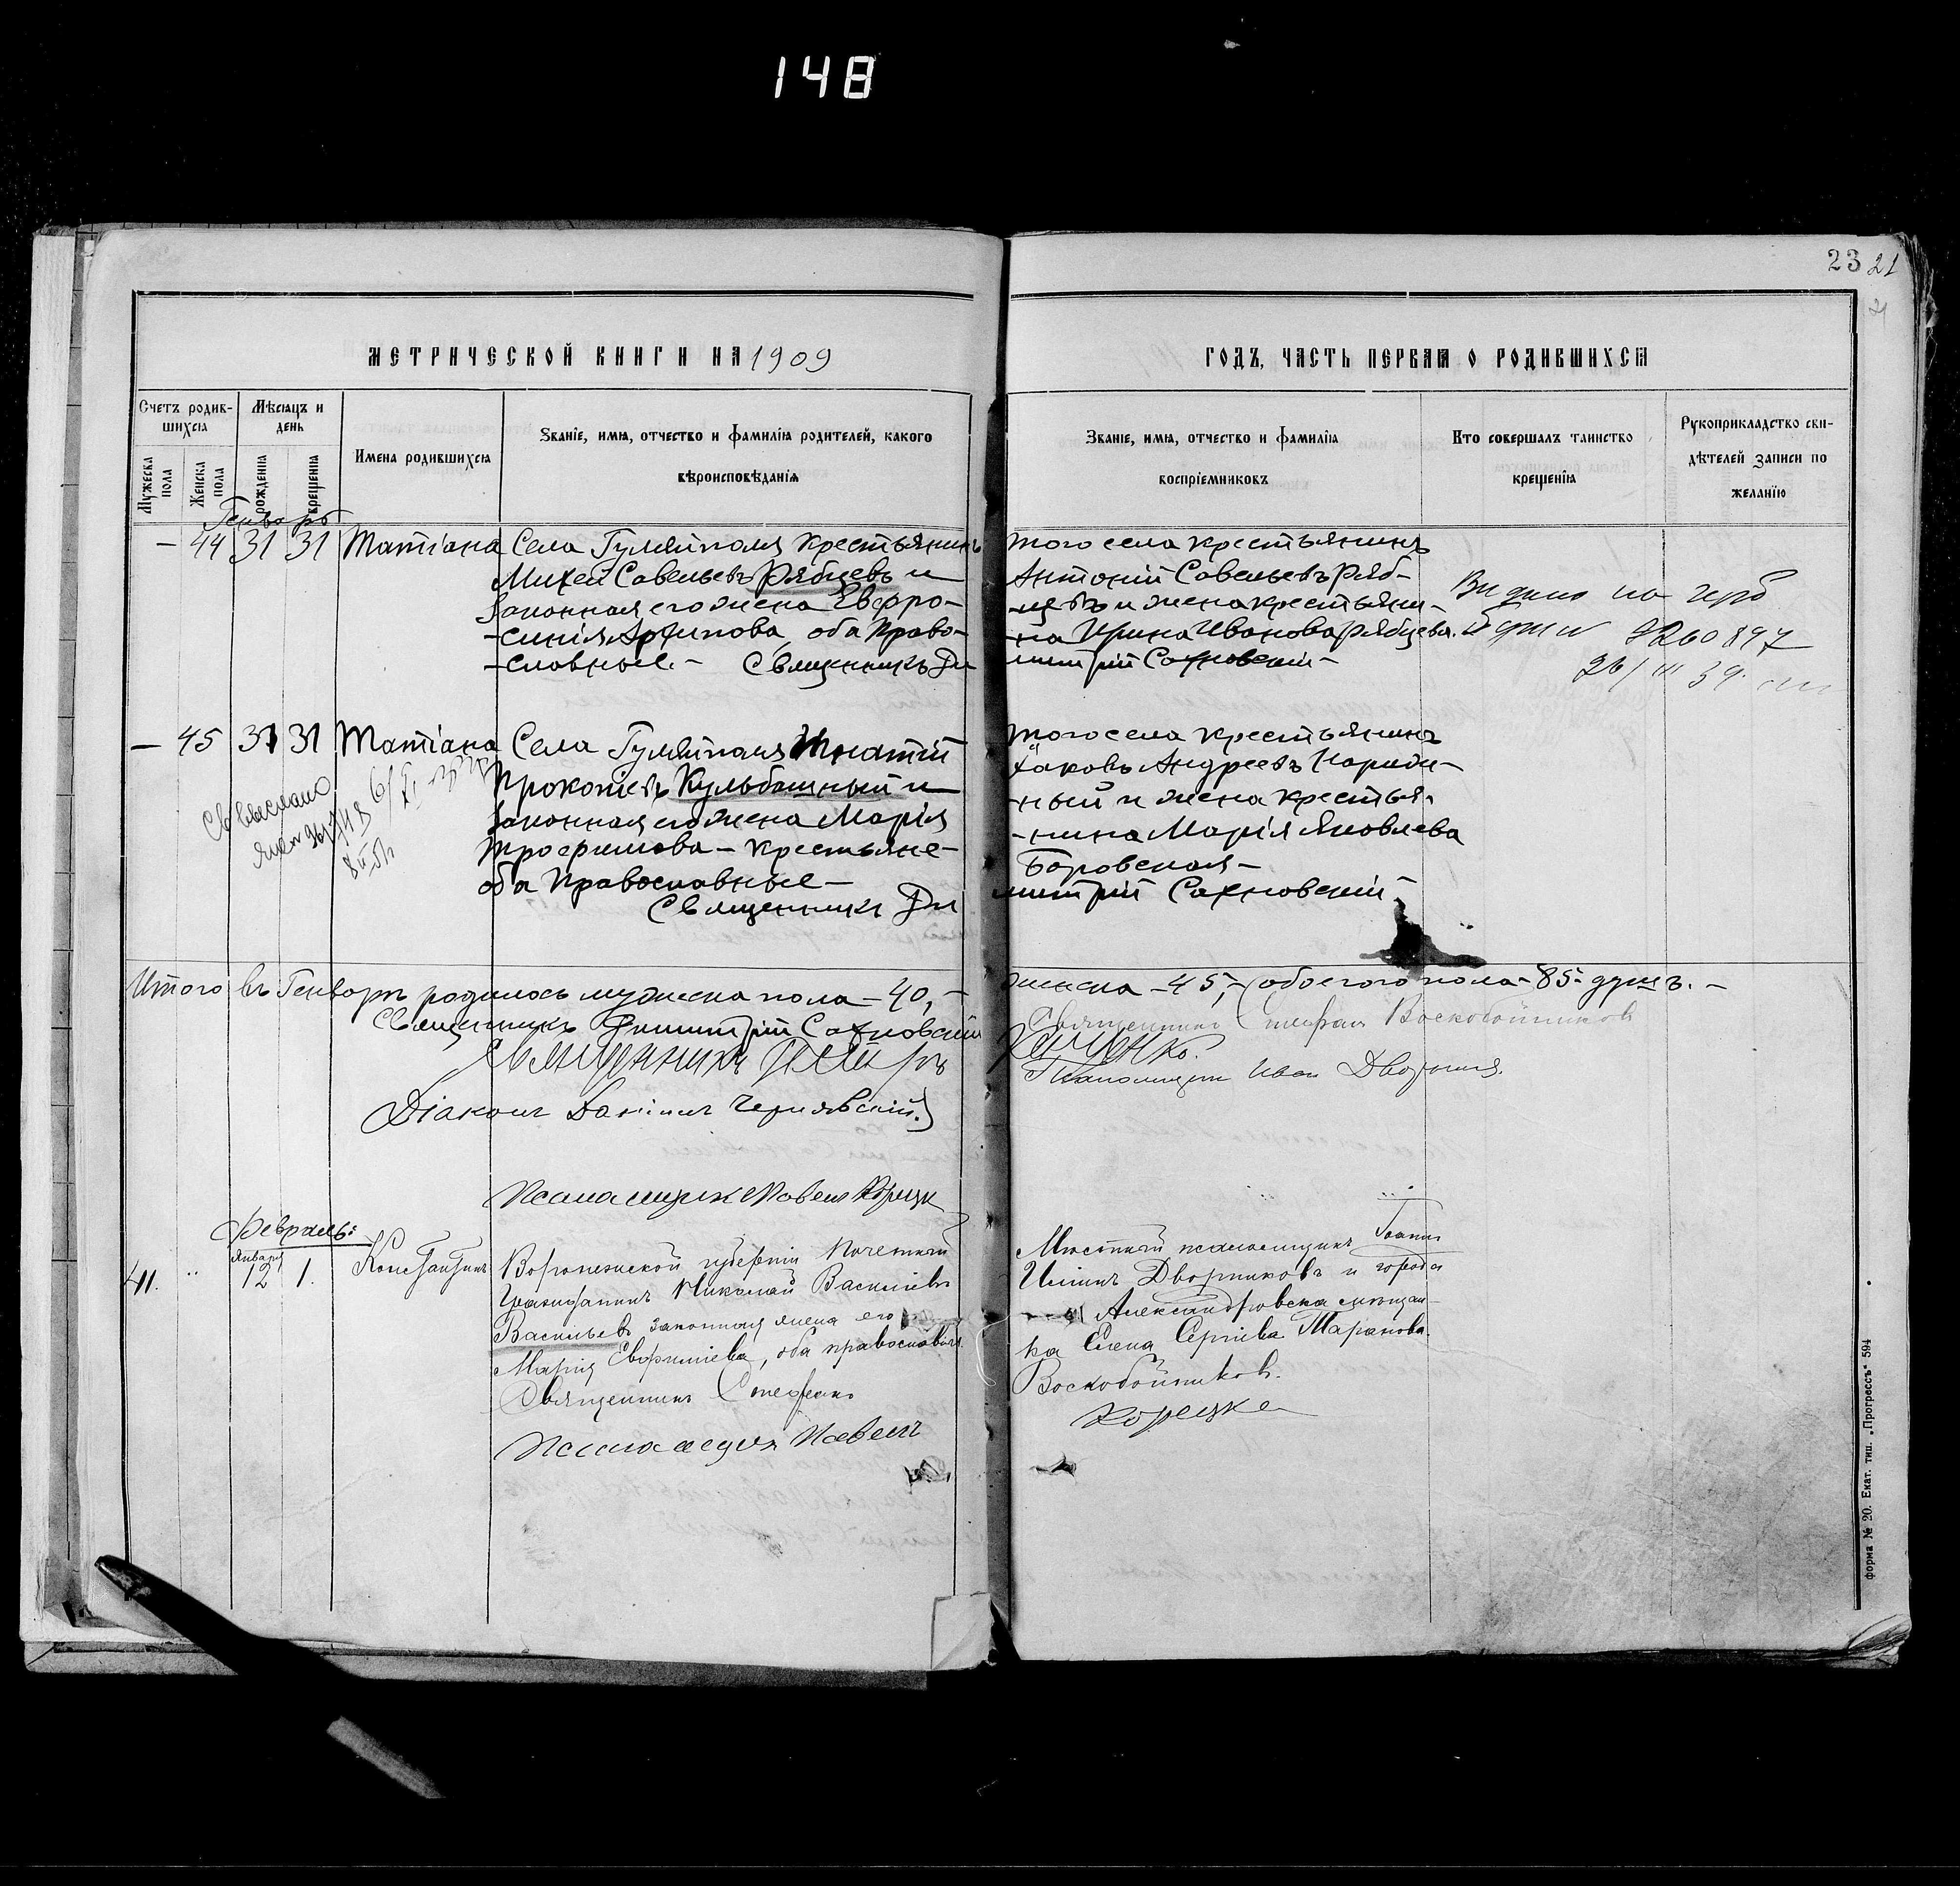 148
23 21
МЕТРИЧЕСКОЙ КНИГИ НА 1909
ГОДЪ, ЧАСТЬ ПЕРВАЯ О РОДИВШИХСЯ
Счетъ родив-
шихся
Мужеска пола
Женска пола
Мѣсяцъ и
день
рожденія
крещенія
Имена родившихся
Званіе, имя, отчество и фамилія родителей, какого
вѣроисповѣданія
Званіе, имя, отчество и фамилія
воспріемниковъ
Кто совершалъ таинство
крещенія
Рукоприкладство сви-
дѣтелей записи по
желанію
Генварь
— 44 31 31 Татіана
Села Гуляйполя крестьянинъ
Михей Савельевъ Рябцевъ и
законная его жена Евфро-
-синія Архипова, оба право-
-славные. — Священникъ Ди
того села крестьянинъ
Антоній Савельевъ Ряб-
-цевъ и жена крестьяни-
-на Ирина Иванова Рябцева.
митрій Сахновскій —
260897
26/III 39.
— 45 31 31 Татіана
Села Гуляйполя Игнатій
Прокопіевъ Кульбашный и
законная его жена Марія
Трофимова — крестьяне —
оба православные —
Священникъ Ди
того села крестьянинъ
Іаковъ Андреевъ
-ный и жена крестья-
-нина Марія Яковлева
Боровская —
митрій Сахновскій
Итого въ Генварѣ родилось мужеска пола — 40, —
женска — 45, — обоего пола — 85 душъ. —
Священникъ Димитрій Сахновскій
Священникъ Стефан Воскобойников
Священникъ Петръ
Псаломщик Иван
Діаконъ Чернявскій
Псаломщик Павел Корецк
Февраль:
41. " Января 12 1. Константинъ
Воронежской губерніи почетный
гражданинъ Николай Василіевъ
Васильевъ законная жена его
Марія Евфиміева, оба православные
Священникъ Стефанъ
Псаломщик Павелъ
Мѣстный псаломщикъ Іоаннъ
Дворниковъ и города
Александровска мѣщан-
ка Елена Сергіева Таранова.
Воскобойников.
Корецк
форма № 20. Екат. тип. „Прогрессъ" 594